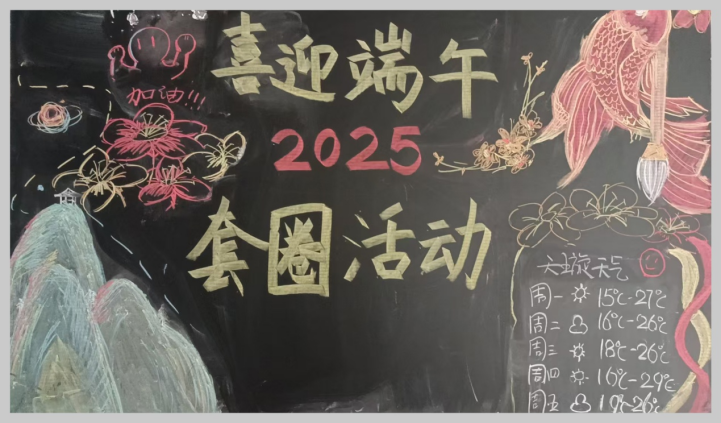 喜迎端午
加油!!!
2025
套圈活动
天气
周一 15℃-27℃
周二 16℃-26℃
周三 18℃-26℃
周四 16℃-29℃
周五 19℃-26℃